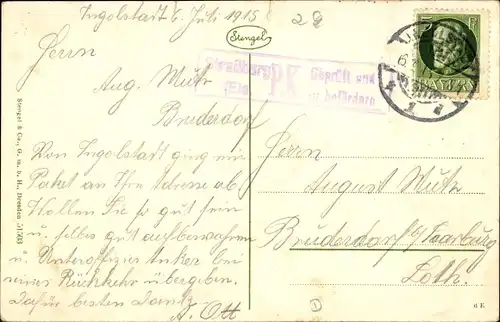 Ingolstadt 6 Juli 1915
28
Stengel
Herrn
Aug. Mutz
Bruderdorf
Von Ingolstadt ging ein
Paket an Ihre Adresse ab
Wollen Sie so gut sein
u selbes gut aufbewahren
u Unteroffizier Anker bei
seiner Rückkehr übergeben.
Dafür besten Dank
A. Ott
Straßburg
(Els.)
P.K.
Geprüft und
zu befördern
BAYERN
Herrn
August Mutz
Bruderdorf b/Saarburg
Loth.
Stengel & Co., G. m. b. H., Dresden 51733
d E
D